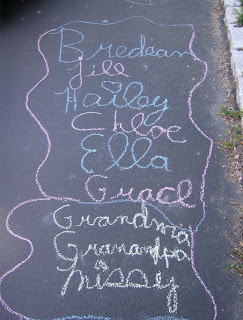 Bredean
Jill
Hailey
Chloe
Ella
Grace
Grandma
Granandpa
Missey